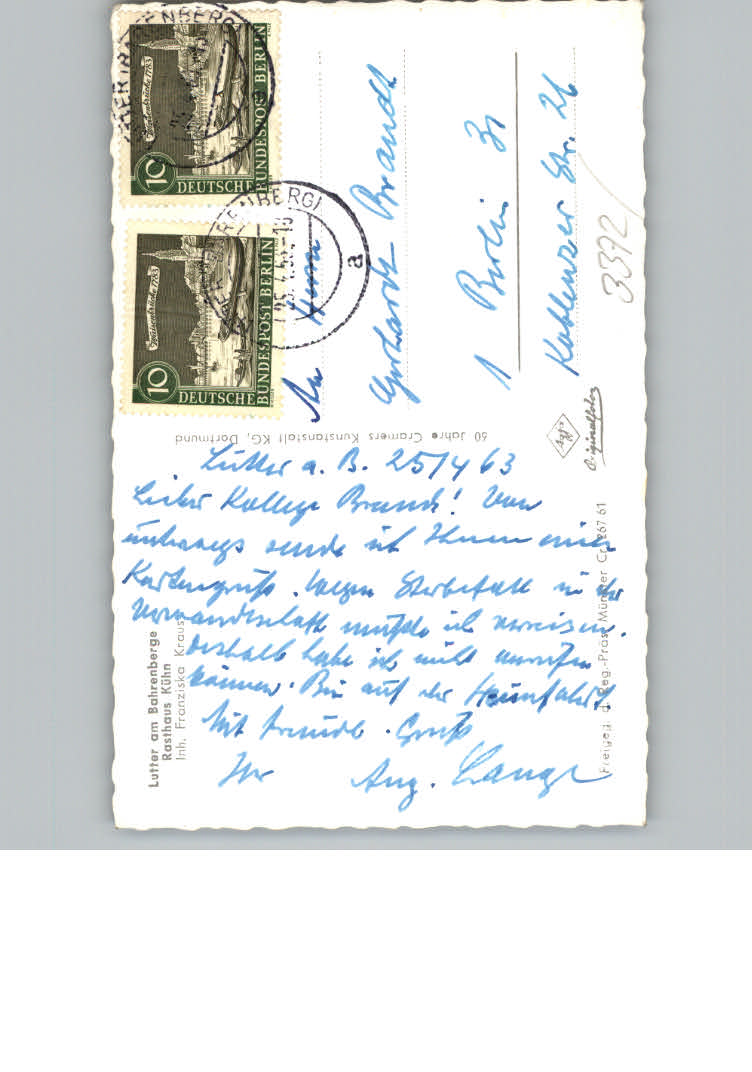 Lutter am Bahrenberge
Rasthaus Kühn
Inh. Franziska Krauss
Lutter a. B. 25/4 63
Lieber Kollege Brandt! Von
unterwegs sende ich Ihnen einen
Kartengruß. Wegen Sterbefall in der
Verwandtschaft mußte ich verreisen.
Deshalb habe ich nicht anrufen
können. Bin auf der Heimfahrt
Mit freundl. Gruß
Ihr Aug. Lange
50 Jahre Cramers Kunstanstalt KG, Dortmund
Freigeg. d. Reg.-Präs. Münster Cr 267 61
Agfa
Originalfoto
An Herrn
Gerhardt Brandt
1 Berlin 31
Koblenzer Str. 26
3392
10
DEUTSCHE BUNDESPOST BERLIN
Waisenbrücke 1783
10
DEUTSCHE BUNDESPOST BERLIN
Waisenbrücke 1783
a